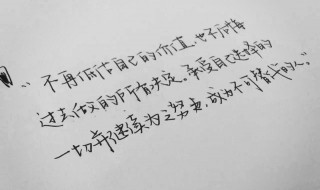 “不再低估自己的价值，也不后悔
过去做过的所有决定。承受自己选择的
一切并继续为之努力，成为不可替代的人。”